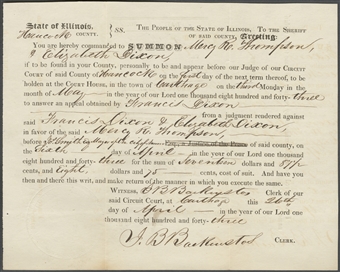 State of Illinois,
Hancock COUNTY. } SS. THE PEOPLE OF THE STATE OF ILLINOIS, TO THE SHERIFF
OF SAID COUNTY, Greeting:
You are hereby commanded to SUMMON Mercy R. Thompson,
& Elizabeth Dixon
if to be found in your County, personally to be and appear before our Judge of our CIRCUIT
COURT of said County of Hancock on the first day of the next term thereof, to be
holden at the Court House, in the town of Carthage on the third Monday in the
month of May in the year of our Lord one thousand eight hundred and forty-three
to answer an appeal obtained by Francis Dixon
from a judgment rendered against
said Francis Dixon & Elizabeth Dixon,
in favor of the said Mercy R. Thompson,
before Smith Mayor Esq., a Justice of the Peace of said county, on
the Sixth day of April in the year of our Lord one thousand
eight hundred and forty-three for the sum of Seventeen dollars and
cents, and Eight, dollars and 75 cents, cost of suit. And have you
then and there this writ, and make return of the manner in which you execute the same.
WITNESS, J B Backenstos Clerk of our
said Circuit Court, at Carthage this 26th
day of April in the year of our Lord one
thousand eight hundred and forty-three
J. B Backenstos CLERK.